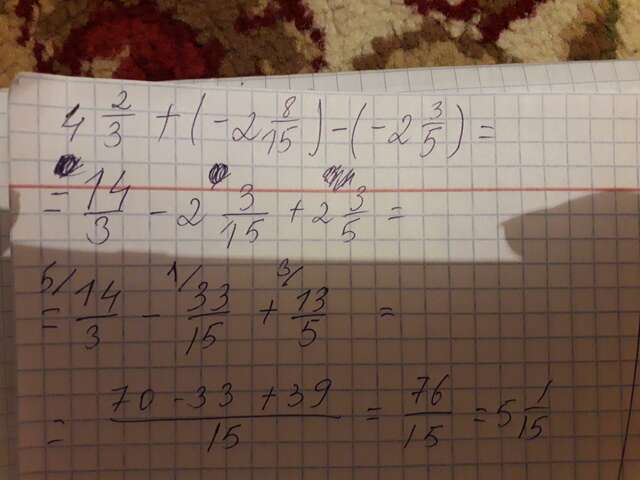 4 2/3 + (-2 8/15) - (-2 3/5) =
= 14/3 - 2 3/15 + 2 3/5 =
= 5/ 14/3 - 1/ 33/15 + 3/ 13/5 =
= 70 - 33 + 39 / 15 = 76/15 = 5 1/15